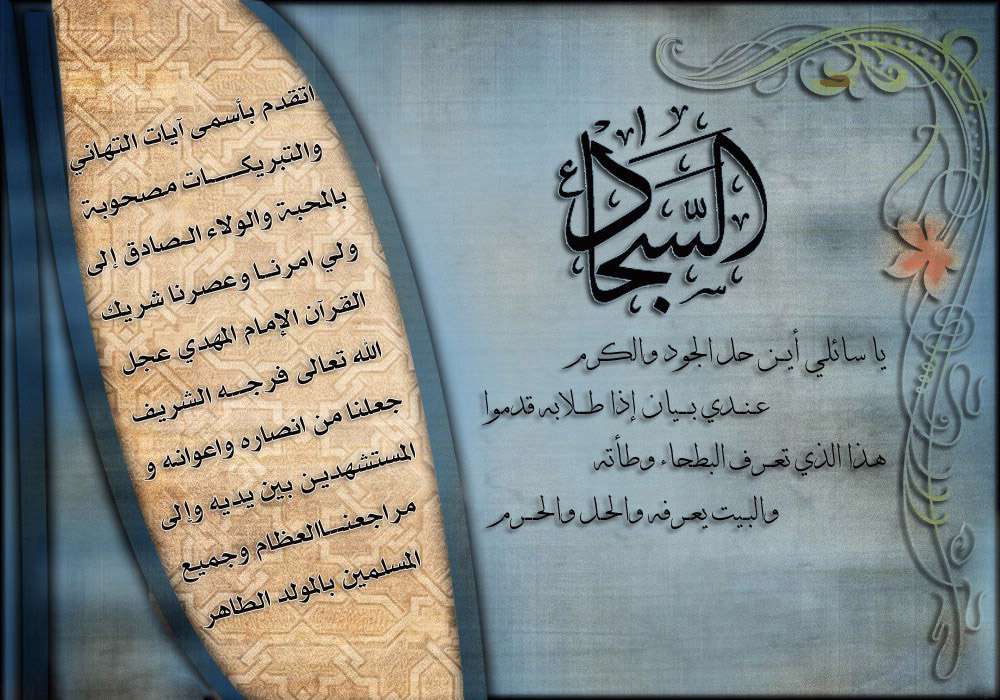 السجاد
يا سائلي أين حل الجود والكرم
عندي بيان إذا طلابه قدموا
هذا الذي تعرف البطحاء وطأته
والبيت يعرفه والحل والحرم
اتقدم بأسمى آيات التهاني
والتبريكات مصحوبة
بالمحبة والولاء الصادق إلى
ولي امرنا وعصرنا شريك
القرآن الإمام المهدي عجل
الله تعالى فرجه الشريف
جعلنا من انصاره واعوانه و
المستشهدين بين يديه وإلى
مراجعنا العظام وجميع
المسلمين بالمولد الطاهر